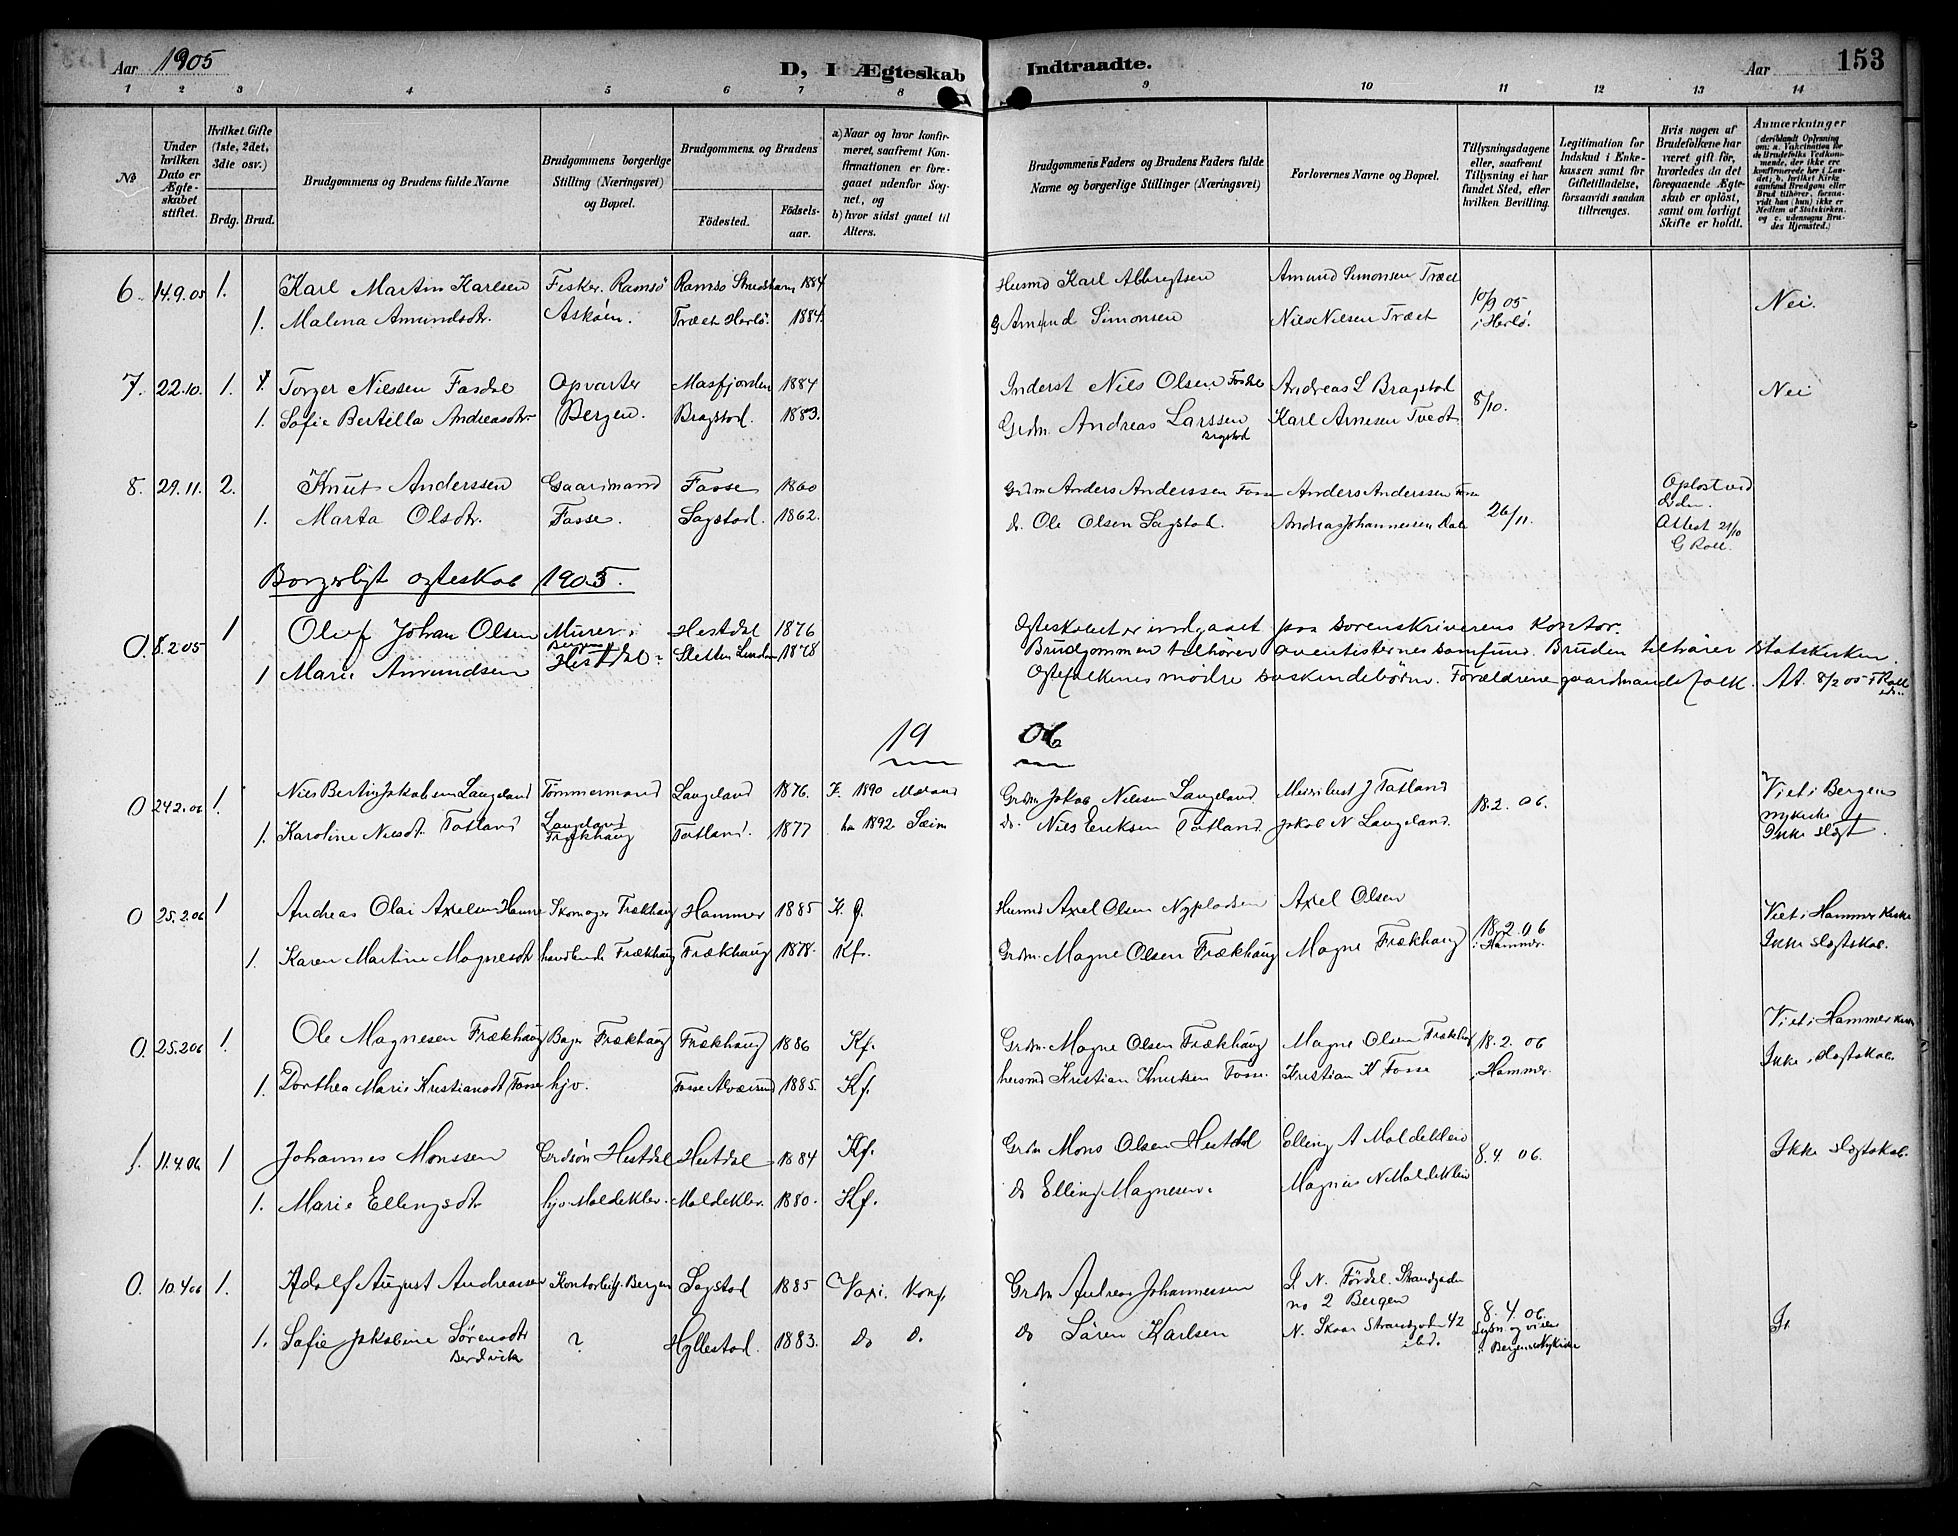 Aar 1905 D, I Ægteskab Indtraadte. Aar 153
1 2 3 4 5 6 7 8 9 10 11 12 13 14
No
Under hvilken Dato er Ægteskabet stiftet.
Hvilket Gifte (1ste, 2det, 3die osv.)
Brdg. Brud.
Brudgommens og Brudens fulde Navne
Brudgommens borgerlige Stilling (Næringsvei) og Bopæl.
Brudgommens og Brudens
Födested. Födsels-aar.
a) Naar og hvor konfirmeret, saafremt Konfirmationen er foregaaet udenfor Sognet, og
b) hvor sidst gaaet til Alters.
Brudgommens Faders og Brudens Faders fulde Navne og borgerlige Stillinger (Næringsvei)
Forlovernes Navne og Bopæl.
Tillysningsdagene eller, saafremt Tillysning ei har fundet Sted, efter hvilken Bevilling.
Legitimation for Indskud i Enkekassen samt for Giftetilladelse, forsaavidt saadan tiltrænges.
Hvis nogen af Brudefolkene har været gift för, hvorledes da det foregaaende Ægteskab er oplöst, samt om lovligt Skifte er holdt.
Anmærkninger (deriblandt Oplysning om: a. Vakcination for de Brudefolks Vedkommende, der ikke ere konfirmerede her i Landet; b. hvilket Kirkesamfund Brudgom eller Brud tilhörer, forsaavidt han (hun) ikke er Medlem af Statskirken, og c. udensogns Brudes Hjemsted.)
6. 14.9.05 1. Karl Martin Karlsen Fisker. Ramsö Ramsö 1884 Husmd Karl Albregtsen Amund Simonsen Træet 10/9 05 Nei.
1. Malena Amundsdtr. Asköen. Træet Herlö. 1884. G Amund Simonsen Niels Nielsen Træet i Herlö.
7. 22.10. 1. Torger Nielsen Fasdal Opvarter Masfjorden 1884 Inderst Niels Olsen Andreas L Bragstad 8/10. Nei
1. Sofie Bertilla Andreasdtr. Bergen. Bragstad. 1883. Grdm. Andreas Larssen Karl Arnesen Tvedt
Bragstad
8. 29.11. 2. Knut Anderssen Gaardmand Fosse 1860 Grdm Anders Anderssen Fosse Anders Anderssen 26/11. Oplöst ved
1. Marta Olsdtr. Fosse. Sagstad. 1862. do. Ole Olsen Sagstad. Andreas Johannessen Attest 21/10
G Roll.
Borgerligt ægteskab 1905.
0. 8.2.05 1 Oluf Johan Olsen Murer. Hestdal 1876 Ægteskabet er indgaaet paa Sorenskriverens Kontor.
Bergen
1 Marie Amundsen Hestdal 1878 Brudgommen tilhörer Aventisternes Samfund. Bruden tilhörer Statskirken.
Ægtefolkenes mödre söskendebörn. Forældrene gaardmandsfolk. At. 8/2 05 Roll
1906
0 24.2.06 1. Niels Bertin Jakobsen Langeland Tömmermand Langeland 1876. K. 1890 Grdm. Jakob Nielsen Langeland. J Tatland 18.2.06. Viet i Bergens
Langeland Nykirke
1. Karoline Nilsdt. Tatland Frækhaug Tatland. 1877 1892 Sæim do. Niels Eriksen Tatland Jakob N Langeland. Ikke slægt.
0 25.2.06 1 Andreas Olai Axelsen Skomager Frækhaug Hammer 1885 K. f. Husmd Axel Olsen Nypladsen Axel Olsen 18.2.06 Viet i Hammer Kirke
1. Karen Martine Magnesdt handlende Frækhaug Frækhaug 1878. Kf. Grdm. Magne Olsen Frækhaug Magne Frækhaug i Hammer. Ikke slægtskab.
0. 25.2.06 1. Ole Magnesen Frækhaug Bager Frækhaug Frækhaug 1886 Kf. Grdm. Magne Olsen Frækhaug Magne Olsen Frækhaug 18.2.06 Viet i Hammer Kirke
1. Dorthea Marie Kristiansdt Fosse hjv. Fosse Alværsund 1885. Kf. husmd Kristian Knutsen Fosse. Kristian K Fosse i Hammer. Ikke slægtskab.
1. 11.4.06 1 Johannes Monssen Grdsön Hestdal Hestdal 1884 Kf. Grdm Mons Olsen Hestdal Elling A Moldeklev 8.4.06. Ikke slægtskab.
1. Marie Ellingsdtr hjv Moldeklev. Moldeklev. 1880. Kf. do Elling Magnesen. Magnus N Moldeklev
0. 10.4.06 1. Adolf August Andreassen Bergen Sagstad 1885 Vaxi. Konf. Grdm Andreas Johannessen J. N. Fördal. Strandgaden
no 2 Bergen
1. Sofie Jakobine Sörensdtr ? Hyllestad. 1883. Do D. do Sören Karlsen N. Skaar Strandgaden 42 8.4.06.
ibd. Bergens Nykirke